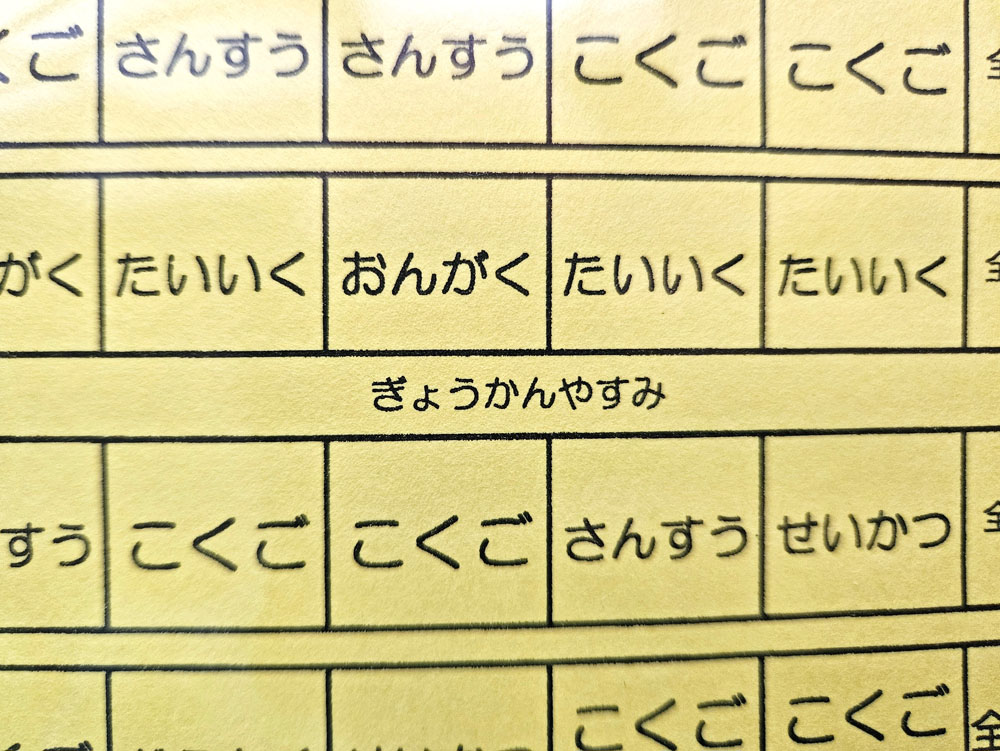 くご さんすう さんすう こくご こくご 全
がく たいいく おんがく たいいく たいいく 全
ぎょうかんやすみ
すう こくご こくご さんすう せいかつ 全
こくご こくご 全